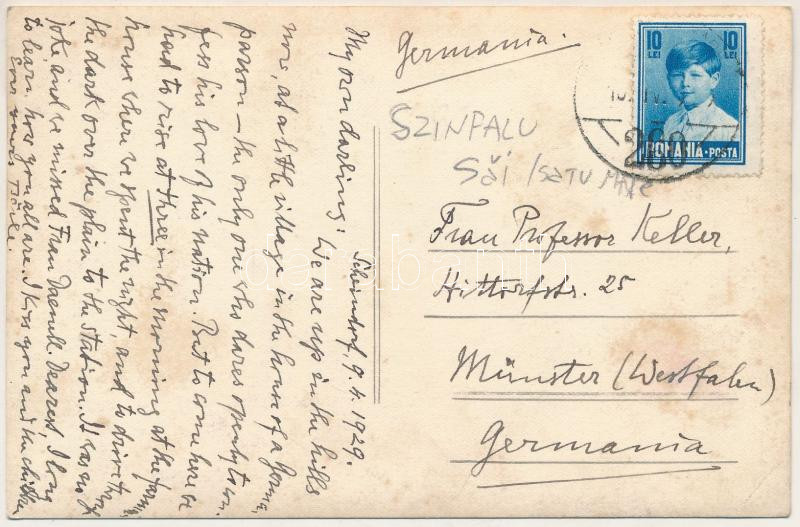 Scheindorf, 9.4.1929.
My own darling! We are up in the hills
now, at a little village in the house of a
parson – the only one who dares openly to con
fess his love of his nation. But to come here we
had to rise at three in the morning at the farm,
house where we spent the night, and to drive
the dark over the plain to the station. It was no
joke, and we missed Frau Daemll. Dearest, I long
to learn how you all are. I kiss you and the
Germania.
10 LEI
10 LEI
ROMANIA · POSTA
260
SZINFALU
Săi / SATU MARE
Frau Professor Keller,
Hittorfstr. 25
Münster (Westfalen)
Germania
darabanth